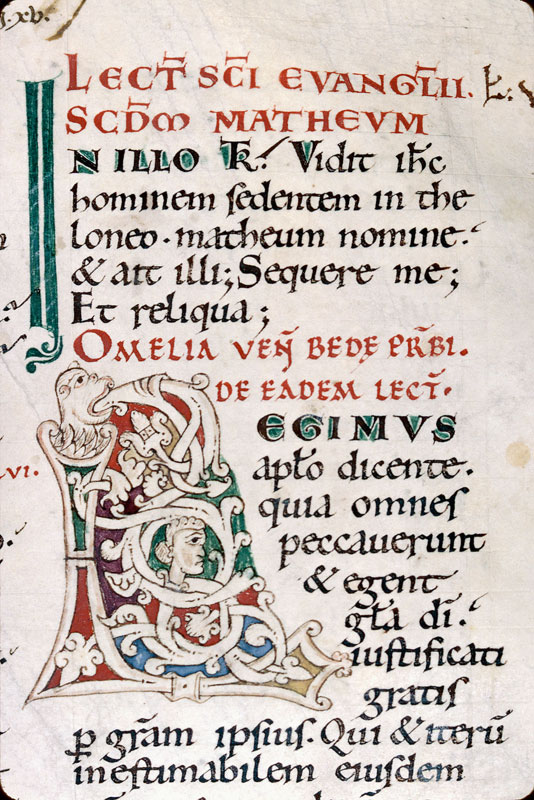 .xv.
LECT̄ SC̄I EVANGL̄II.
SCD̄M MATHEVM
IN ILLO T̄R. Vidit ih̄c
hominem sedentem in the
loneo · matheum nomine.
& ait illi; Sequere me;
Et reliqua;
OMELIA VEN̄ BEDE PR̄BI.
DE EADEM LECT̄.
LEGIMVS
ap̄lo dicente.
quia omnes
peccauerunt
& egent
gl̄a dī.
iustificati
gratis
p̄ gr̄am ipsius. Qui & iterū
inestimabilem eiusdem
VI.